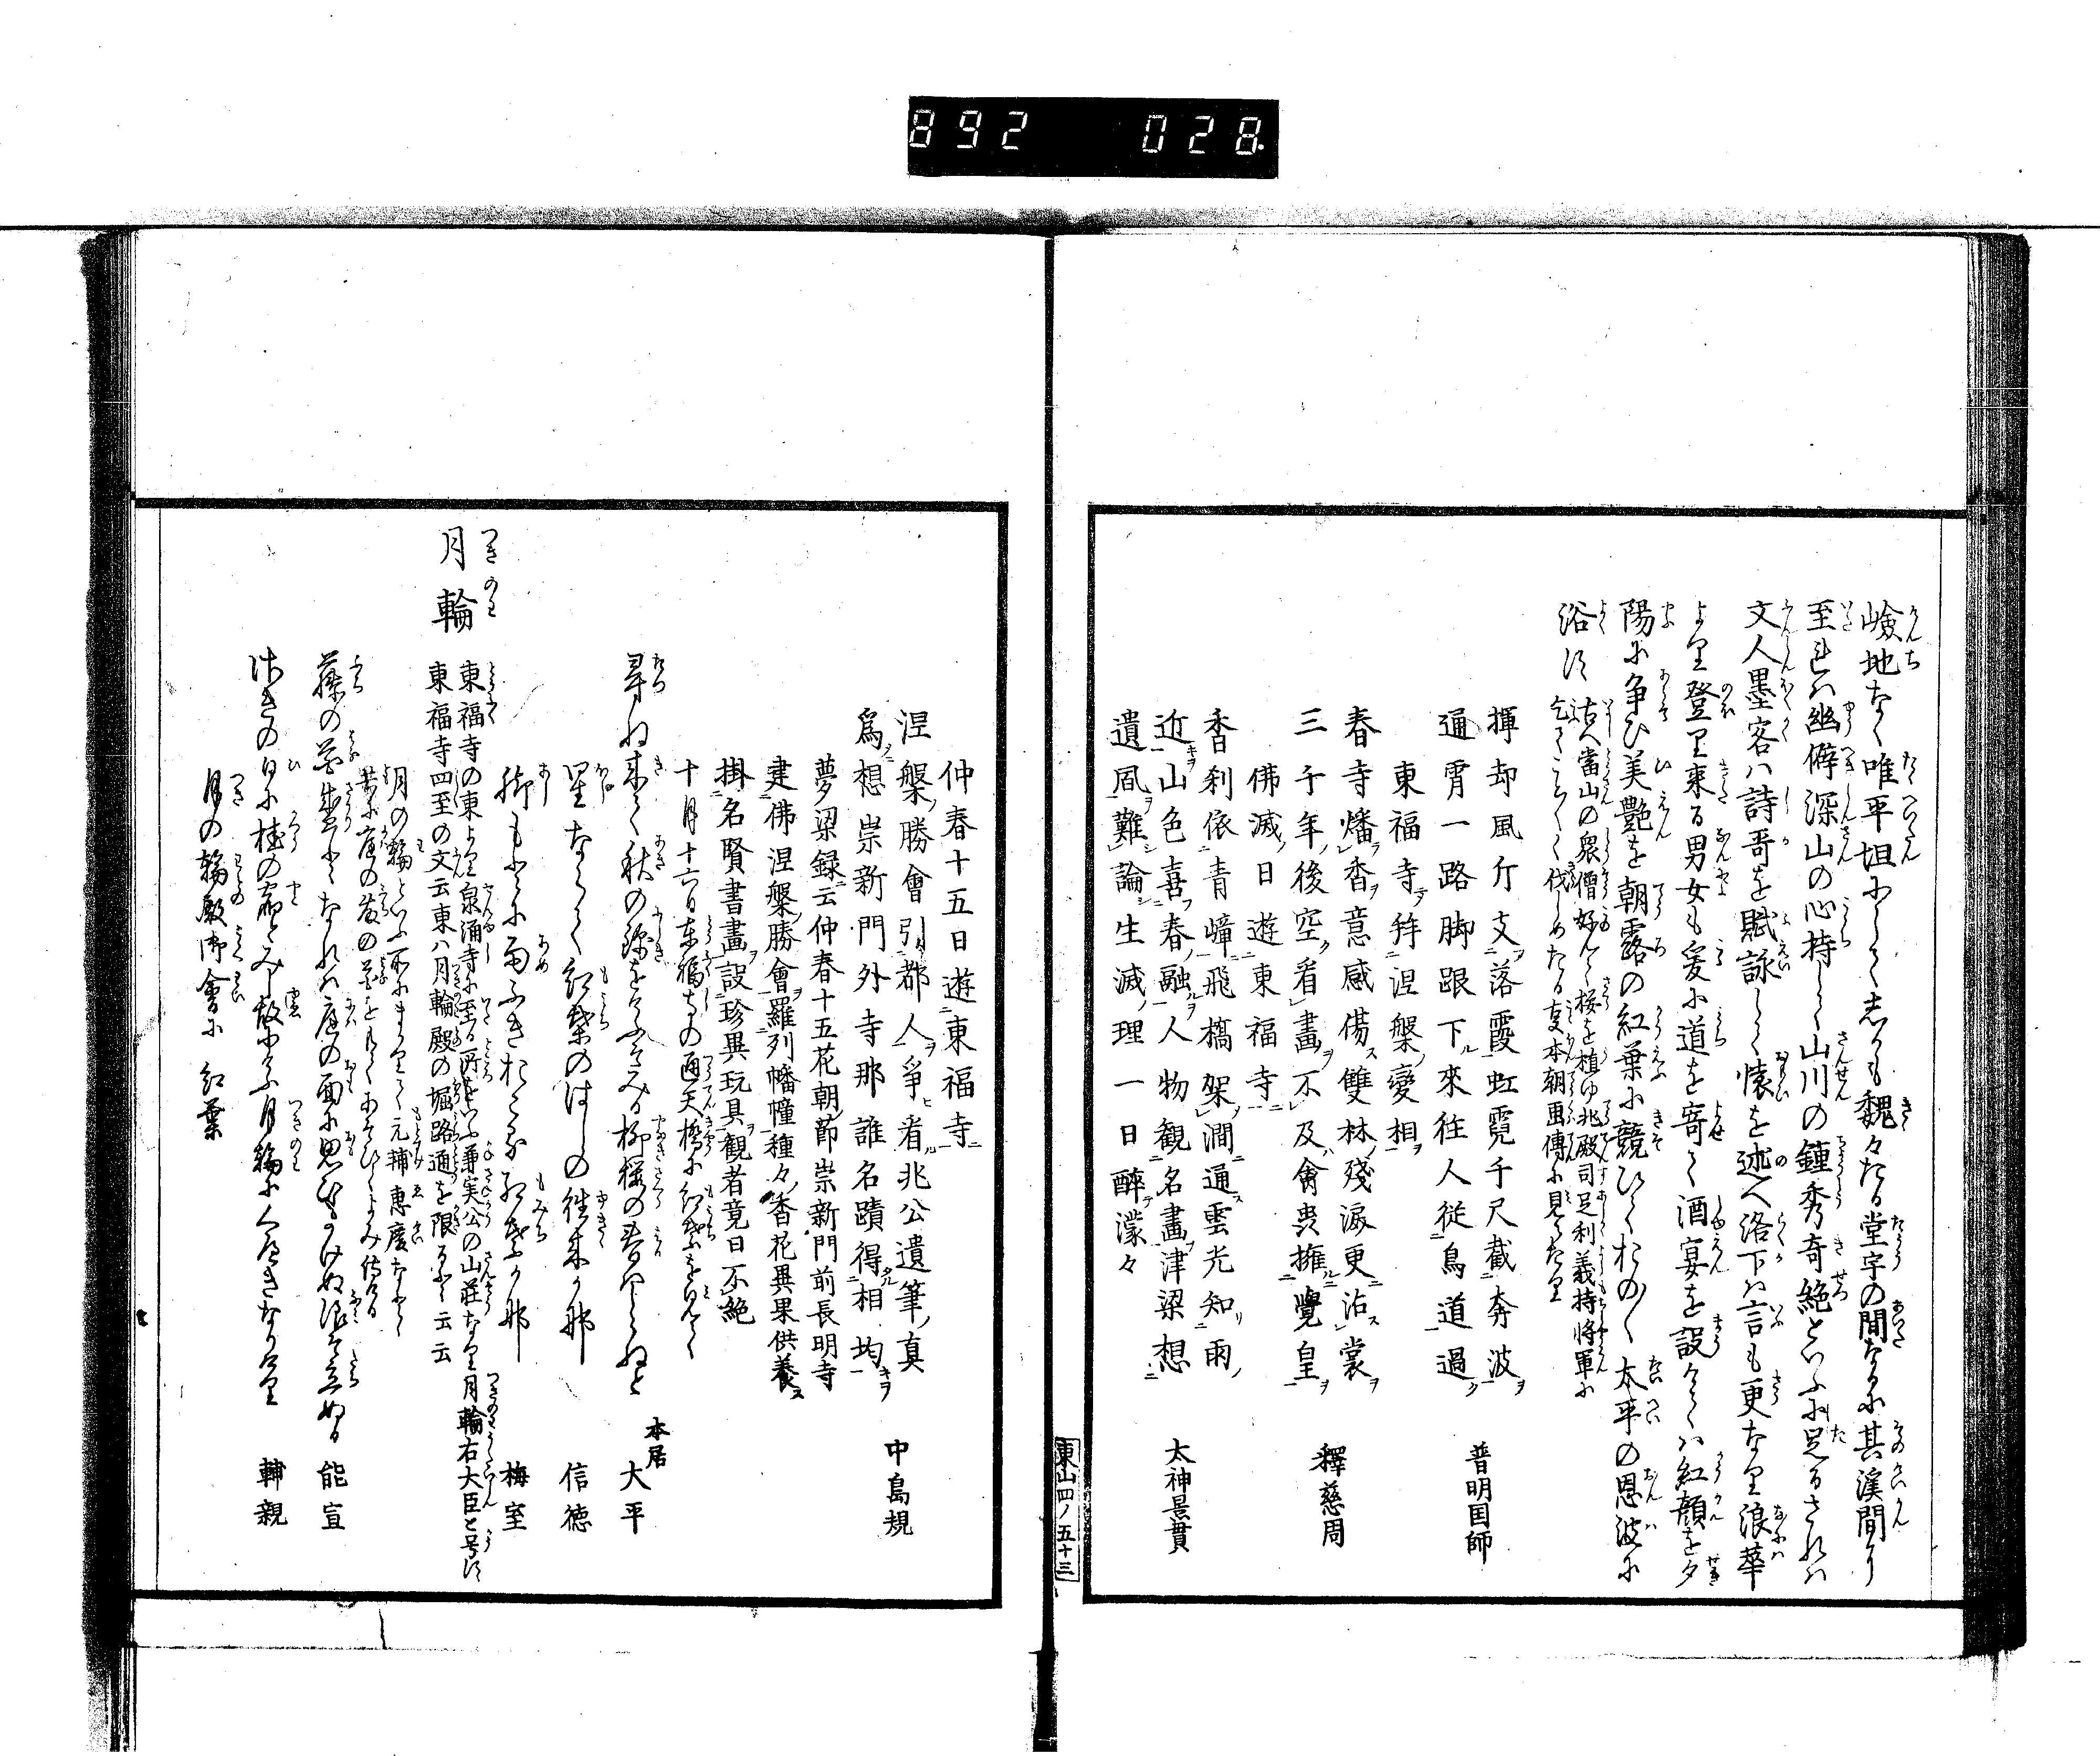 892 028
嶮地なく唯平坦にしてしかも魏々たる堂宇の間なるに其溪間に
至れは幽僻深山の心持して山川の鍾秀奇絶といふに足るされは
文人墨客は詩哥を賦詠して懐を述へ洛下は言も更なり浪華
より登り来る男女も爰に道を寄て酒宴を設けては紅顔を夕
陽に争ひ美艶を朝露の紅葉に競ひておの〱太平の恩波に
浴す
古へ當山の衆僧好んて桜を植ゆ兆殿司足利義持将軍に
乞てこと〱く伐しめたる事本朝画傳に見えたり
揮却風斤支落霞虹霓千尺截奔波
通霄一路脚跟下來往人從鳥道過 普明国師
東福寺拜涅槃變相
春寺燔香意感傷雙林殘淚更沾裳
三千年後空看畫不及禽畏擁覺皇 釋慈周
佛滅日遊東福寺
香刹依青嶂飛橋架澗通雲光知雨
近山色喜春融人物観名畫津梁想
遺風難論生滅理一日醉濛々 太神景貫
東山四ノ五十三
仲春十五日遊東福寺
涅槃勝會引都人爭看兆公遺筆真
爲想崇新門外寺那誰名蹟得相均 中島規
夢梁録云仲春十五花朝節崇新門前長明寺
建佛涅槃勝會羅列幡幢種々香花異果供養
掛名賢書畫設珍異玩具観者竟日不絶
十月十六日東福寺の通天橋に紅葉を見て
尋ね来て秋の錦をけふそみる柳桜の春ならねと 本居 大平
星なくて紅葉のはしの往来か那 信徳
脚もとに雨ふきおこる紅葉か那 梅室
月輪
東福寺の東より泉涌寺に至る所をいふ兼実公の山荘なり月輪右大臣と号す
東福寺四至の文云東ハ月輪殿の堀路通を限る云云
月の輪といふ所にまかりて元輔恵慶なと
共に庭の藤の花をもてあそひてよみ侍る
藤の花盛となれは庭の面に思ひもかけぬ浪そ立ぬる 能宣
月の輪殿御會に 紅葉
輔親